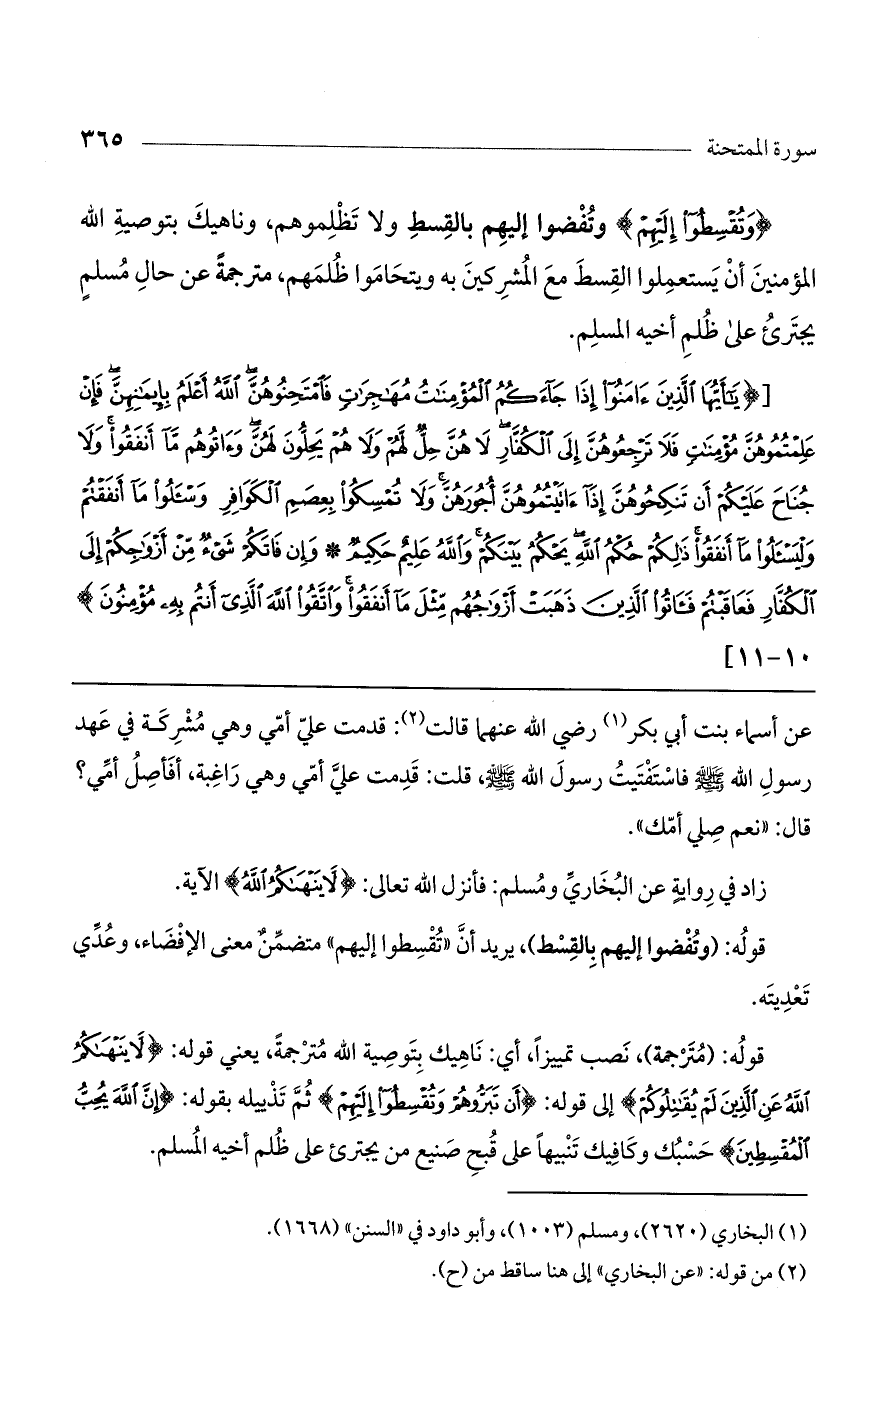 سورة الممتحنة ٣٦٥
﴿وَتُقْسِطُوٓا۟ إِلَيْهِمْ﴾ وتُفْضوا إليهِم بالقِسطِ ولا تَظْلِموهم، وناهيكَ بتوصيةِ الله
المؤمنينَ أنْ يَستعمِلوا القِسطَ معَ المُشرِكينَ به ويتحَامَوا ظُلمَهم، مترجمةً عن حالِ مُسلمٍ
يجتَرئُ علىٰ ظُلمِ أخيه المسلِم.
[﴿يَٰٓأَيُّهَا ٱلَّذِينَ ءَامَنُوٓا۟ إِذَا جَآءَكُمُ ٱلْمُؤْمِنَٰتُ مُهَٰجِرَٰتٍ فَٱمْتَحِنُوهُنَّ ۖ ٱللَّهُ أَعْلَمُ بِإِيمَٰنِهِنَّ ۖ فَإِنْ
عَلِمْتُمُوهُنَّ مُؤْمِنَٰتٍ فَلَا تَرْجِعُوهُنَّ إِلَى ٱلْكُفَّارِ ۖ لَا هُنَّ حِلٌّ لَّهُمْ وَلَا هُمْ يَحِلُّونَ لَهُنَّ ۖ وَءَاتُوهُم مَّآ أَنفَقُوا۟ ۚ وَلَا
جُنَاحَ عَلَيْكُمْ أَن تَنكِحُوهُنَّ إِذَآ ءَاتَيْتُمُوهُنَّ أُجُورَهُنَّ ۚ وَلَا تُمْسِكُوا۟ بِعِصَمِ ٱلْكَوَافِرِ وَسْـَٔلُوا۟ مَآ أَنفَقْتُمْ
وَلْيَسْـَٔلُوا۟ مَآ أَنفَقُوا۟ ۚ ذَٰلِكُمْ حُكْمُ ٱللَّهِ ۖ يَحْكُمُ بَيْنَكُمْ ۚ وَٱللَّهُ عَلِيمٌ حَكِيمٌ * وَإِن فَاتَكُمْ شَىْءٌ مِّنْ أَزْوَٰجِكُمْ إِلَى
ٱلْكُفَّارِ فَعَاقَبْتُمْ فَـَٔاتُوا۟ ٱلَّذِينَ ذَهَبَتْ أَزْوَٰجُهُم مِّثْلَ مَآ أَنفَقُوا۟ ۚ وَٱتَّقُوا۟ ٱللَّهَ ٱلَّذِىٓ أَنتُم بِهِۦ مُؤْمِنُونَ﴾
١٠-١١]
عن أسماء بنت أبي بكر(١) رضي الله عنهما قالت(٢): قدمت عليّ أمّي وهي مُشْرِكَة في عَهد
رسولِ الله ﷺ فاسْتَفْتَيتُ رسولَ الله ﷺ، قلت: قَدِمت عليَّ أمّي وهي رَاغِبة، أفَأصِلُ أمِّي؟
قال: «نعم صِلي أمّك».
زاد في رِوايةٍ عن البُخَاريِّ ومُسلم: فأنزل الله تعالى: ﴿لَا يَنْهَىٰكُمُ ٱللَّهُ﴾ الآية.
قولُه: (وتُفْضوا إليهم بِالقِسْط)، يريد أنَّ «تُقْسِطوا إليهم» متضمِّنٌ معنى الإفْضَاء، وعُدِّي
تَعْدِيتَه.
قولُه: (مُتَرْجمة)، نَصب تمييزاً، أي: نَاهِيك بِتَوصِية الله مُترْجمةً، يعني قوله: ﴿لَا يَنْهَىٰكُمُ
ٱللَّهُ عَنِ ٱلَّذِينَ لَمْ يُقَٰتِلُوكُمْ﴾ إلى قوله: ﴿أَن تَبَرُّوهُمْ وَتُقْسِطُوٓا۟ إِلَيْهِمْ﴾ ثُمَّ تَذْييله بقوله: ﴿إِنَّ ٱللَّهَ يُحِبُّ
ٱلْمُقْسِطِينَ﴾ حَسْبُك وكَافِيك تَنْبيهاً على قُبحِ صَنيع من يجترئ على ظُلم أخيه المُسلم.
(١) البخاري (٢٦٢٠)، ومسلم (١٠٠٣)، وأبو داود في «السنن» (١٦٦٨).
(٢) من قوله: «عن البخاري» إلى هنا ساقط من (ح).